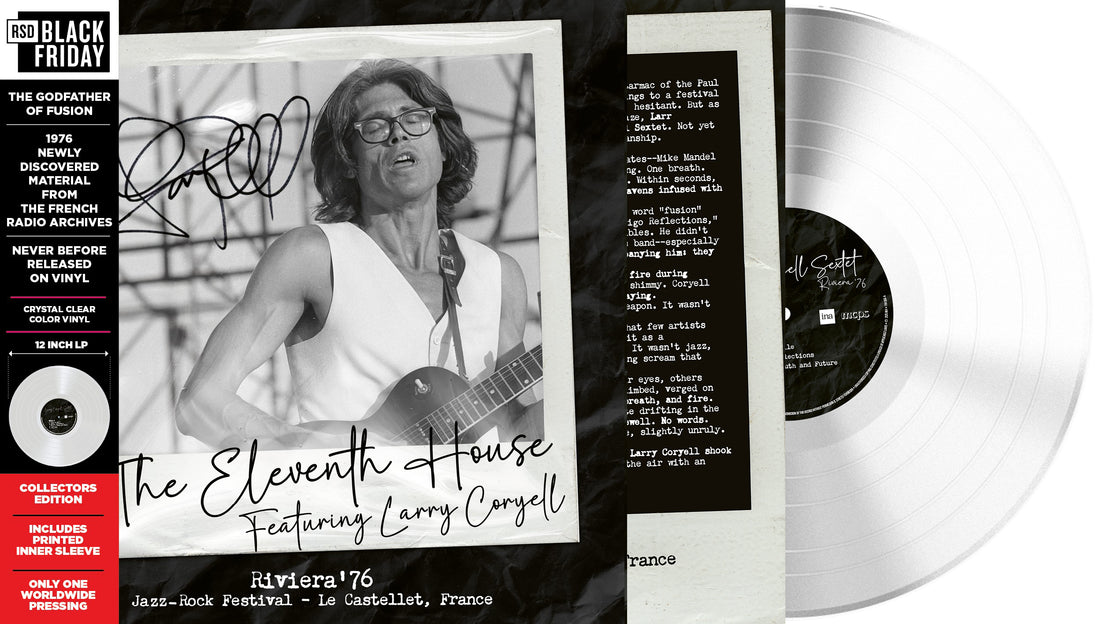 RSD BLACK
FRIDAY
THE GODFATHER
OF FUSION
1976
NEWLY
DISCOVERED
MATERIAL
FROM
THE FRENCH
RADIO ARCHIVES
NEVER BEFORE
RELEASED
ON VINYL
CRYSTAL CLEAR
COLOR VINYL
12 INCH LP
COLLECTORS
EDITION
INCLUDES
PRINTED
INNER SLEEVE
ONLY ONE
WORLDWIDE
PRESSING
Coryell
The Eleventh House
Featuring Larry Coryell
Riviera'76
Jazz-Rock Festival - Le Castellet, France
armac of the Paul
ngs to a festival
hesitant. But as
aze, Larr
l Sextet. Not yet
anship.
ates--Mike Mandel
ng. One breath.
. Within seconds,
avens infused with
word "fusion"
igo Reflections,"
bles. He didn't
s band--especially
panying him: they
fire during
shimmy. Coryell
aying.
eapon. It wasn't
hat few artists
it as a
It wasn't jazz,
ng scream that
r eyes, others
imbed, verged on
breath, and fire.
e drifting in the
ewell. No words.
e, slightly unruly.
Larry Coryell shook
the air with an
France
ell Sextet
Riviera '76
ina mcps
lle
lections
uth and Future